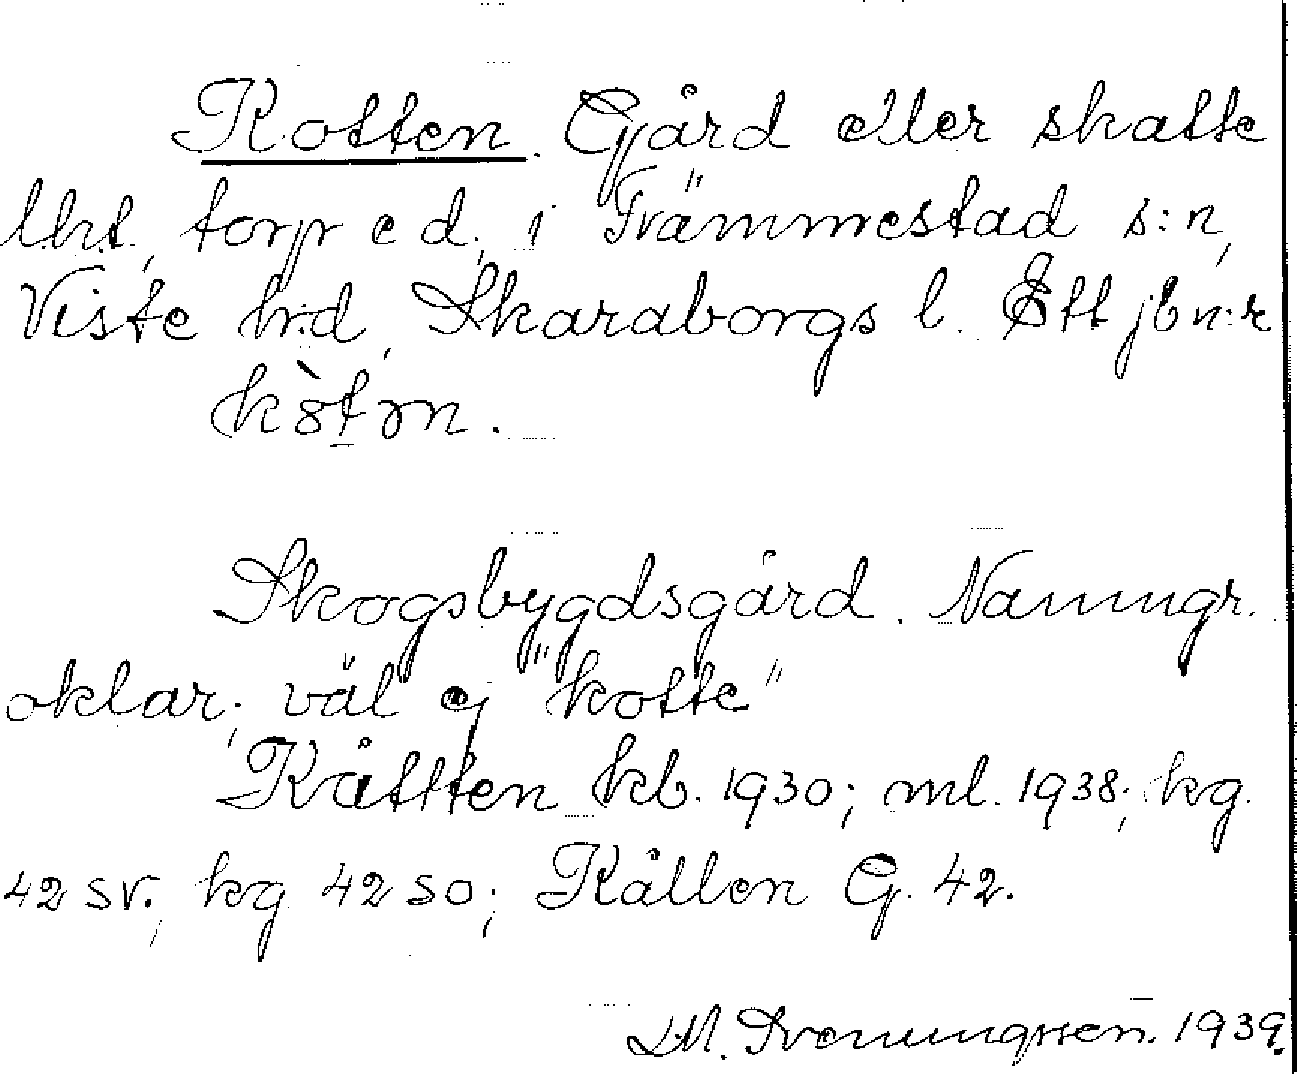 Kotten. Gård eller skatte
lht, torp e d; i Främmestad s:n,
Viste hd, Skaraborgs l. Ett jbn:r
kòtən.
Skogsbygdsgård. Namngr.
oklar; väl ej "kotte"
Kåtten kb. 1930; ml. 1938; kg.
42 SV., kg 42 SO; Kållen G. 42.
M. Svenungsson. 1939.